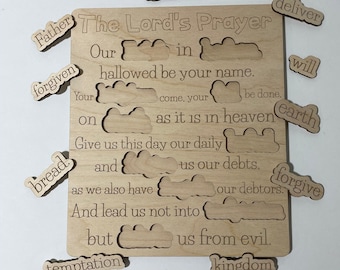 The Lord's Prayer
Our in
hallowed be your name.
Your come, your be done,
on as it is in heaven
Give us this day our daily
and us our debts.
as we also have our debtors.
And lead us not into
but us from evil.
Father
forgiven
bread
temptation
deliver
will
earth
forgive
kingdom